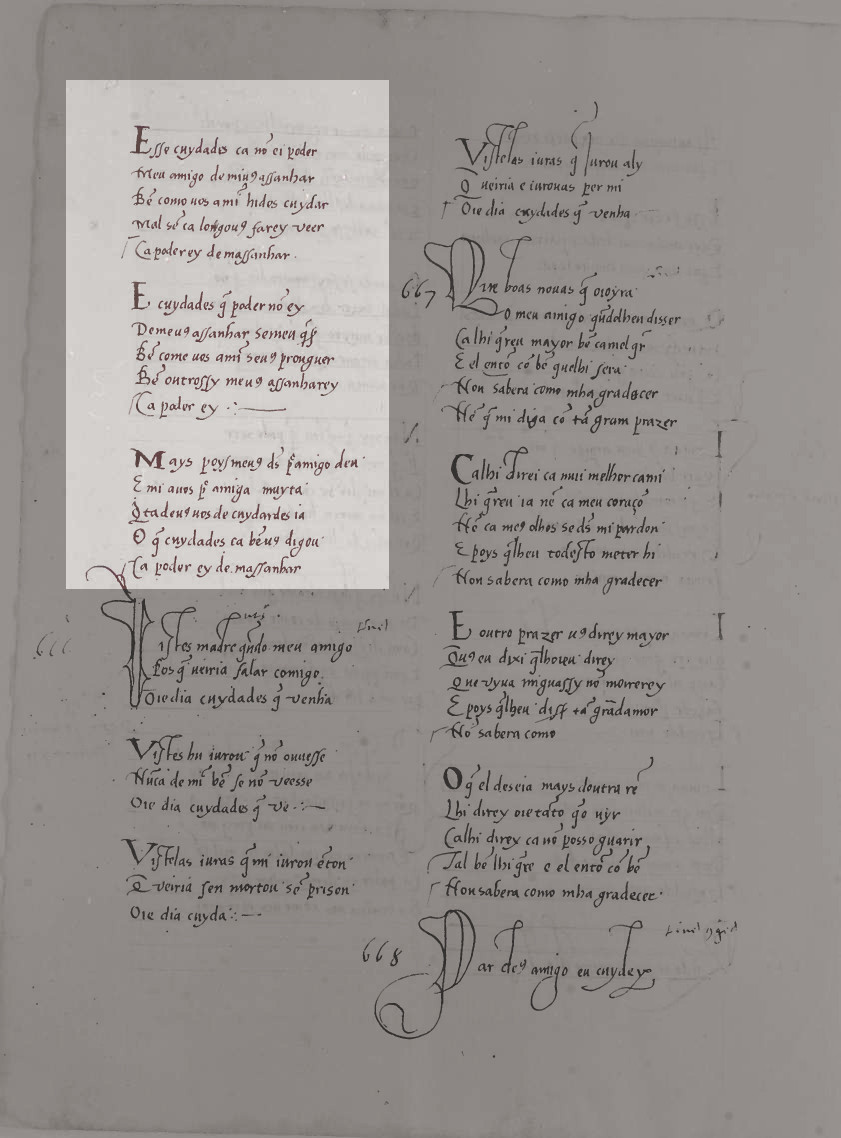 Esse cuydades ca nõ ei poder
Meu amigo de miuꝯ assanhar
Bẽ como uos a mĩ hides cuydar
Mal sẽ ca longouꝯ farey veer
Ca poderey de massanhar.
E cuydades q̃ poder nõ ey
De meuꝯ assanhar semeu
Bẽ come uos amĩ seuꝯ prouguer
Bẽ outrossy meuꝯ assanharey
Ca poder ey
Mays poys meuꝯ ds̃ amigo deu
E mi auos amiga muyta
Q̃tadeuꝯ uos de cuydardes ia
O q̃ cuydades ca bẽ uꝯ digou
Ca poder ey de massanhar
666
Vistes madre q̃ndo meu amigo
Pos q̃ ueiria falar comigo
Oie dia cuydades q̃ venha
Vistes hu iurou q̃ nõ ouuesse
Nũca de mĩ bẽ se nõ veesse
Oie dia cuydades q̃ ve
Vistelas iuras q̃ mi iurou ẽton
Q̃ veiria sen mortou sẽ prison
Oie dia cuyda
Vistelas iuras q̃ iurou aly
Q̃ ueiria e iurouas per mi
Oie dia cuydades q̃ venha
667
boas nouas q̃ oioyra
O meu amigo q̃ndolhen disser
Ca lhi q̃reu mayor bẽ camel q̃r
E el entõ cõ bẽ quelhi sera
Non sabera como mha gradecer
Nẽ q̃ mi diga cõ tã gram prazer
Ca lhi direi ca mui melhor cami
Lhi q̃reu ia nẽ ca meu coraçõ
Nẽ ca meꝯ olhos se ds̃ mi pardon
E poys q̃lheu todesto meter hi
Non sabera como mha gradecer
E outro prazer uꝯ direy mayor
Quꝯ eu dixi q̃lheu direy
Que vyua miguassy nõ morrerey
E poys q̃lheu tã grãdamor
Nõ sabera como
O q̃ el deseia mays doutra rẽ
Lhi direy oie tãto q̃o uyr
Ca lhi direy ca nõ posso guarir
Tal bẽ lhi q̃re e el entõ cõ bẽ
Non sabera como mha gradecer
668
Par deꝯ amigo eu cuydey